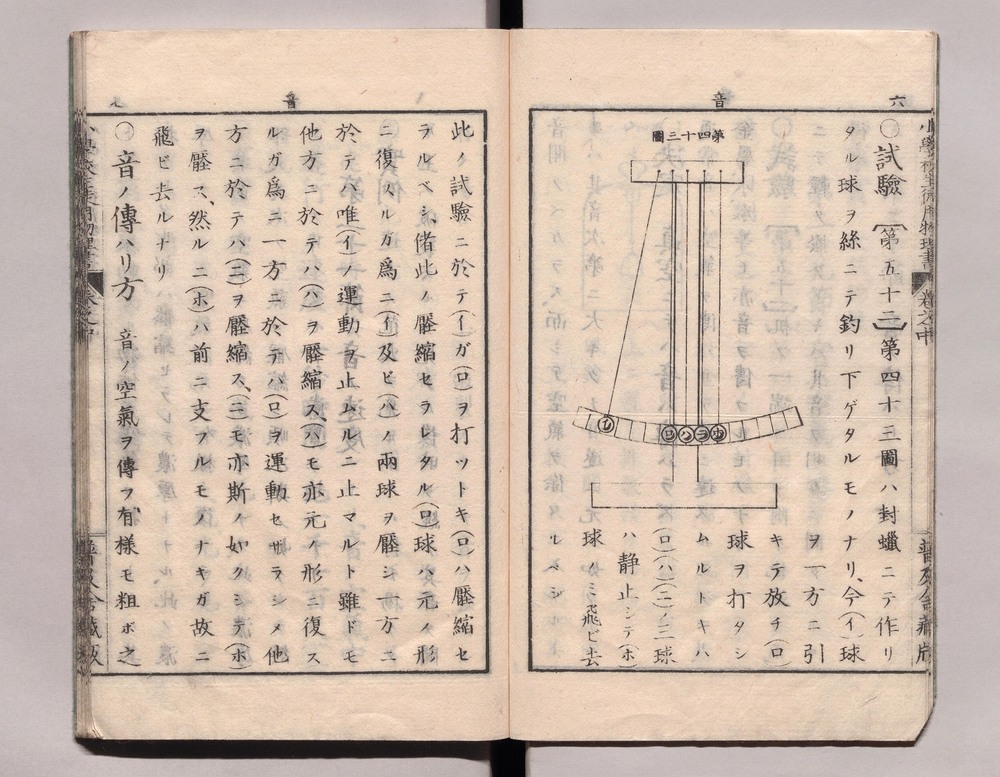 六
音
小學校生徒用物理書 卷之中
普及舍藏版
○試驗【第五十二】第四十三圖ハ封蠟ニテ作リ
タル球ヲ絲ニテ釣リ下ゲタルモノナリ、今(イ)球
ヲ一方ニ引
キテ放チ(ロ)
球ヲ打タシ
ムルトキハ
(ロ)(ハ)(ニ)ノ三球
ハ靜止シテ(ホ)
球ハミ飛ビ去
第四十三圖
イ
ロ
ハ
ニ
ホ
音
七
此ノ試驗ニ於テ(イ)ガ(ロ)ヲ打ツトキ(ロ)ハ壓縮セ
ラルベシ、偖此ノ壓縮セラレタル(ロ)球ハ元ノ形
ニ復スルガ爲ニ(イ)及ビ(ハ)ノ兩球ヲ壓シ一方ニ
於テハ唯(イ)ノ運動ヲ止ムルニ止マルト雖ドモ
他方ニ於テハ(ハ)ヲ壓縮ス、(ハ)モ亦元ノ形ニ復ス
ルガ爲ニ一方ニ於テハ(ロ)ヲ運動セザラシメ他
方ニ於テハ(ニ)ヲ壓縮ス、(ニ)モ亦斯ノ如クシテ(ホ)
ヲ壓ス、然ルニ(ホ)ハ前ニ支フルモノナキガ故ニ
飛ビ去ルナリ
○音ノ傳ハリ方 音ノ空氣ヲ傳フ有樣モ粗ボ之
小學校生徒用物理書 卷之中
普及舍藏版